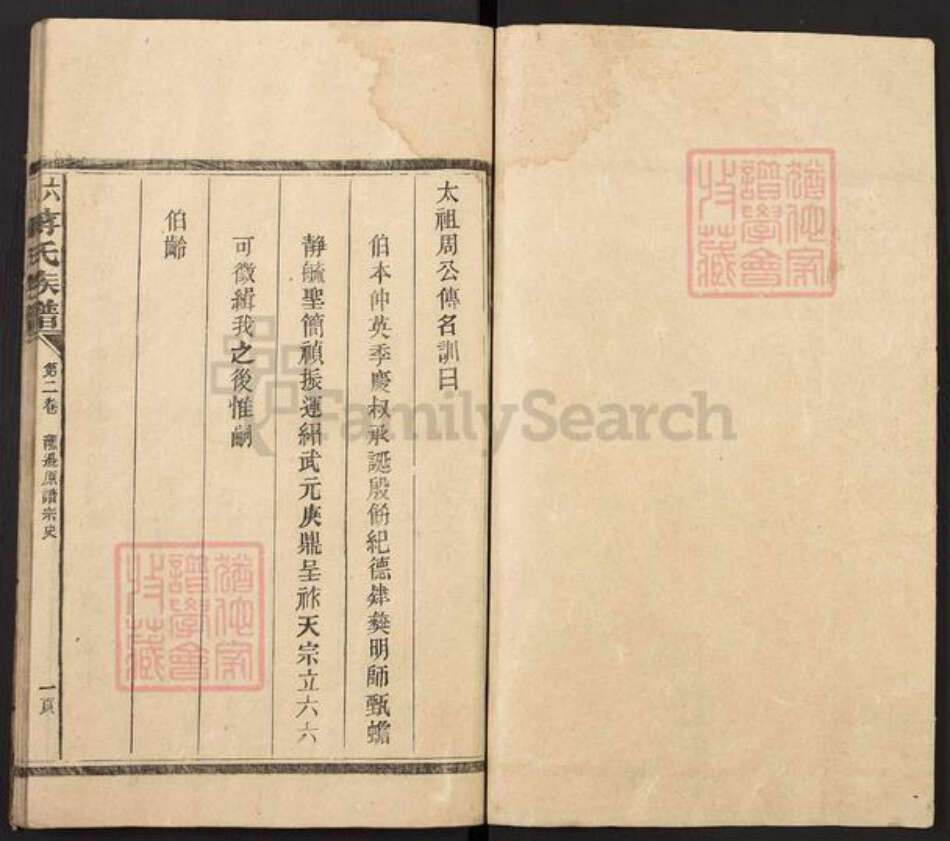 太祖周公傳名訓曰
伯本仲英季慶叔承誕殷餅紀德肆彜明師甄蟾
靜毓聖簡禎振運紹武元庚鼎呈祚天宗立六六
可徵緝我之後惟嗣
伯齡
六 蔣氏族譜 第二卷 原譜宗史 一頁
猶他家
譜學會
收藏
猶他家
譜學會
收藏
FamilySearch